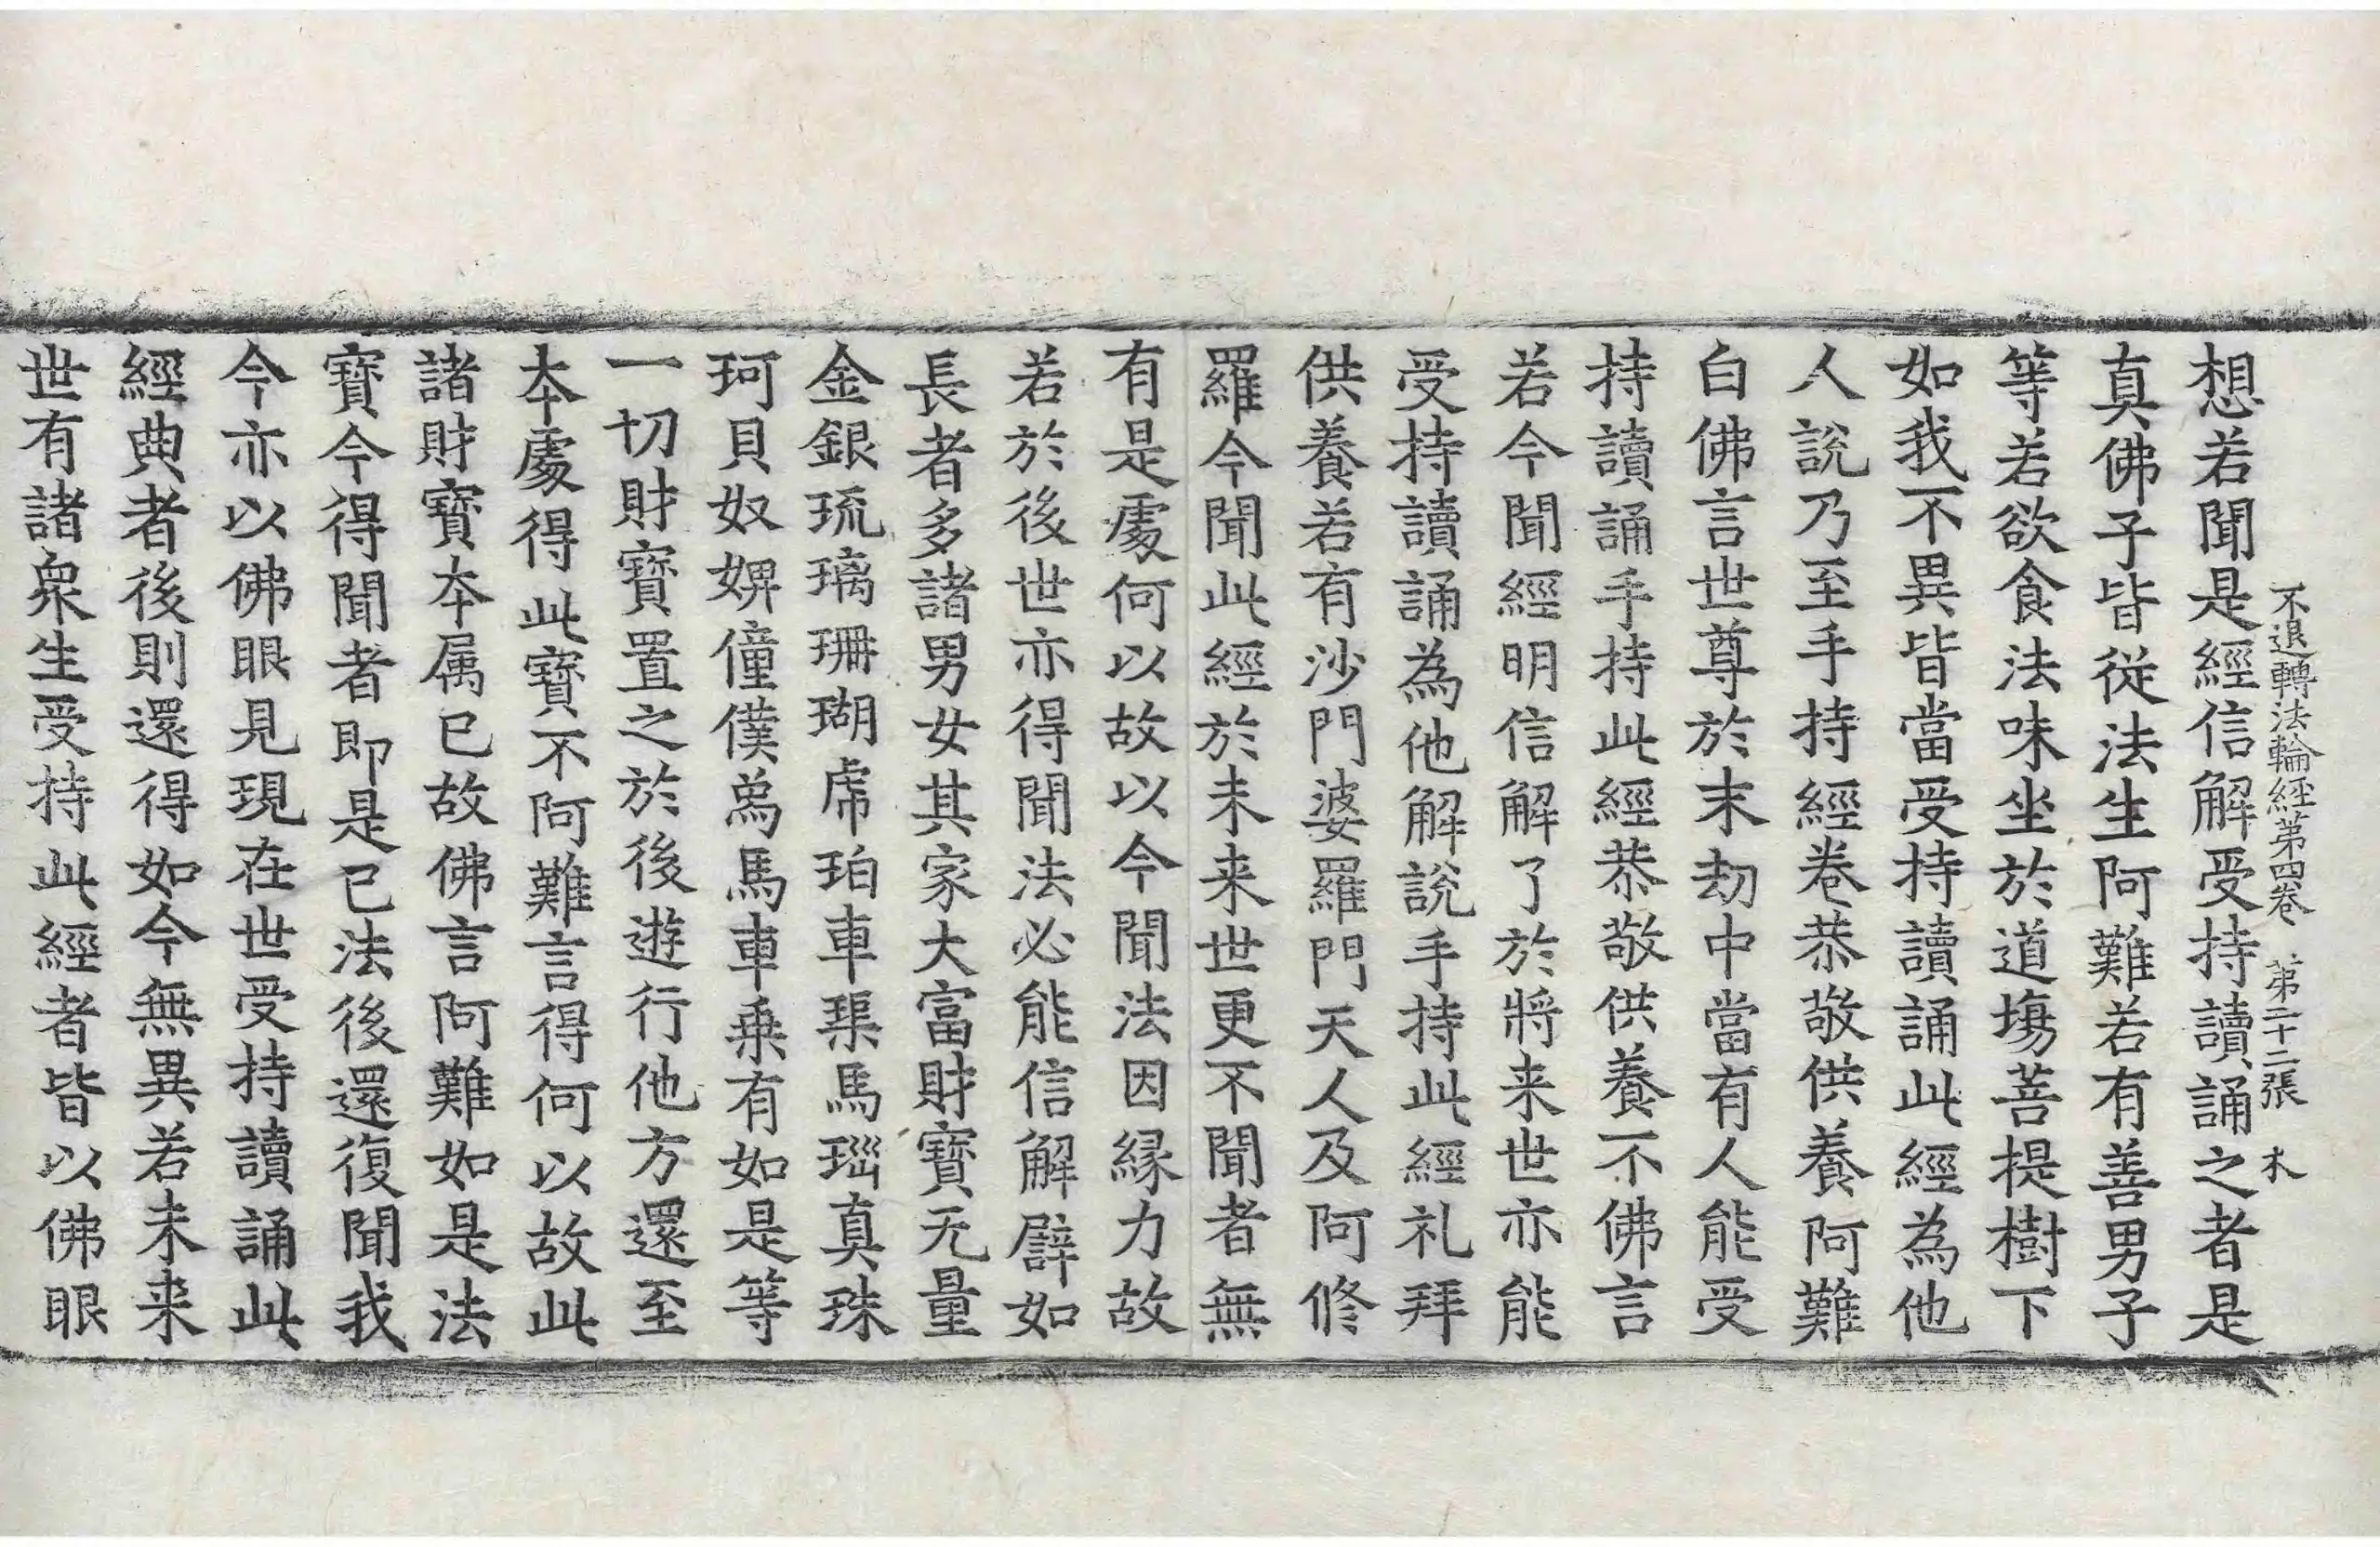 不退轉法輪經第四卷 第二十二張 木
想若聞是經信解受持讀誦之者是
真佛子皆從法生阿難若有善男子
等若欲食法味坐於道場菩提樹下
如我不異皆當受持讀誦此經為他
人說乃至手持經卷恭敬供養阿難
白佛言世尊於末劫中當有人能受
持讀誦手持此經恭敬供養不佛言
若今聞經明信解了於將来世亦能
受持讀誦為他解說手持此經礼拜
供養若有沙門婆羅門天人及阿修
羅今聞此經於未来世更不聞者無
有是處何以故以今聞法因縁力故
若於後世亦得聞法必能信解辟如
長者多諸男女其家大富財寶无量
金銀琉璃珊瑚虎珀車𤦲馬瑙真珠
珂貝奴婢僮僕為馬車乗有如是等
一切財寶置之於後遊行他方還至
本處得此寶不阿難言得何以故此
諸財寶本属已故佛言阿難如是法
寶今得聞者即是已法後還復聞我
今亦以佛眼見現在世受持讀誦此
經典者後則還得如今無異若未来
世有諸衆生受持此經者皆以佛眼